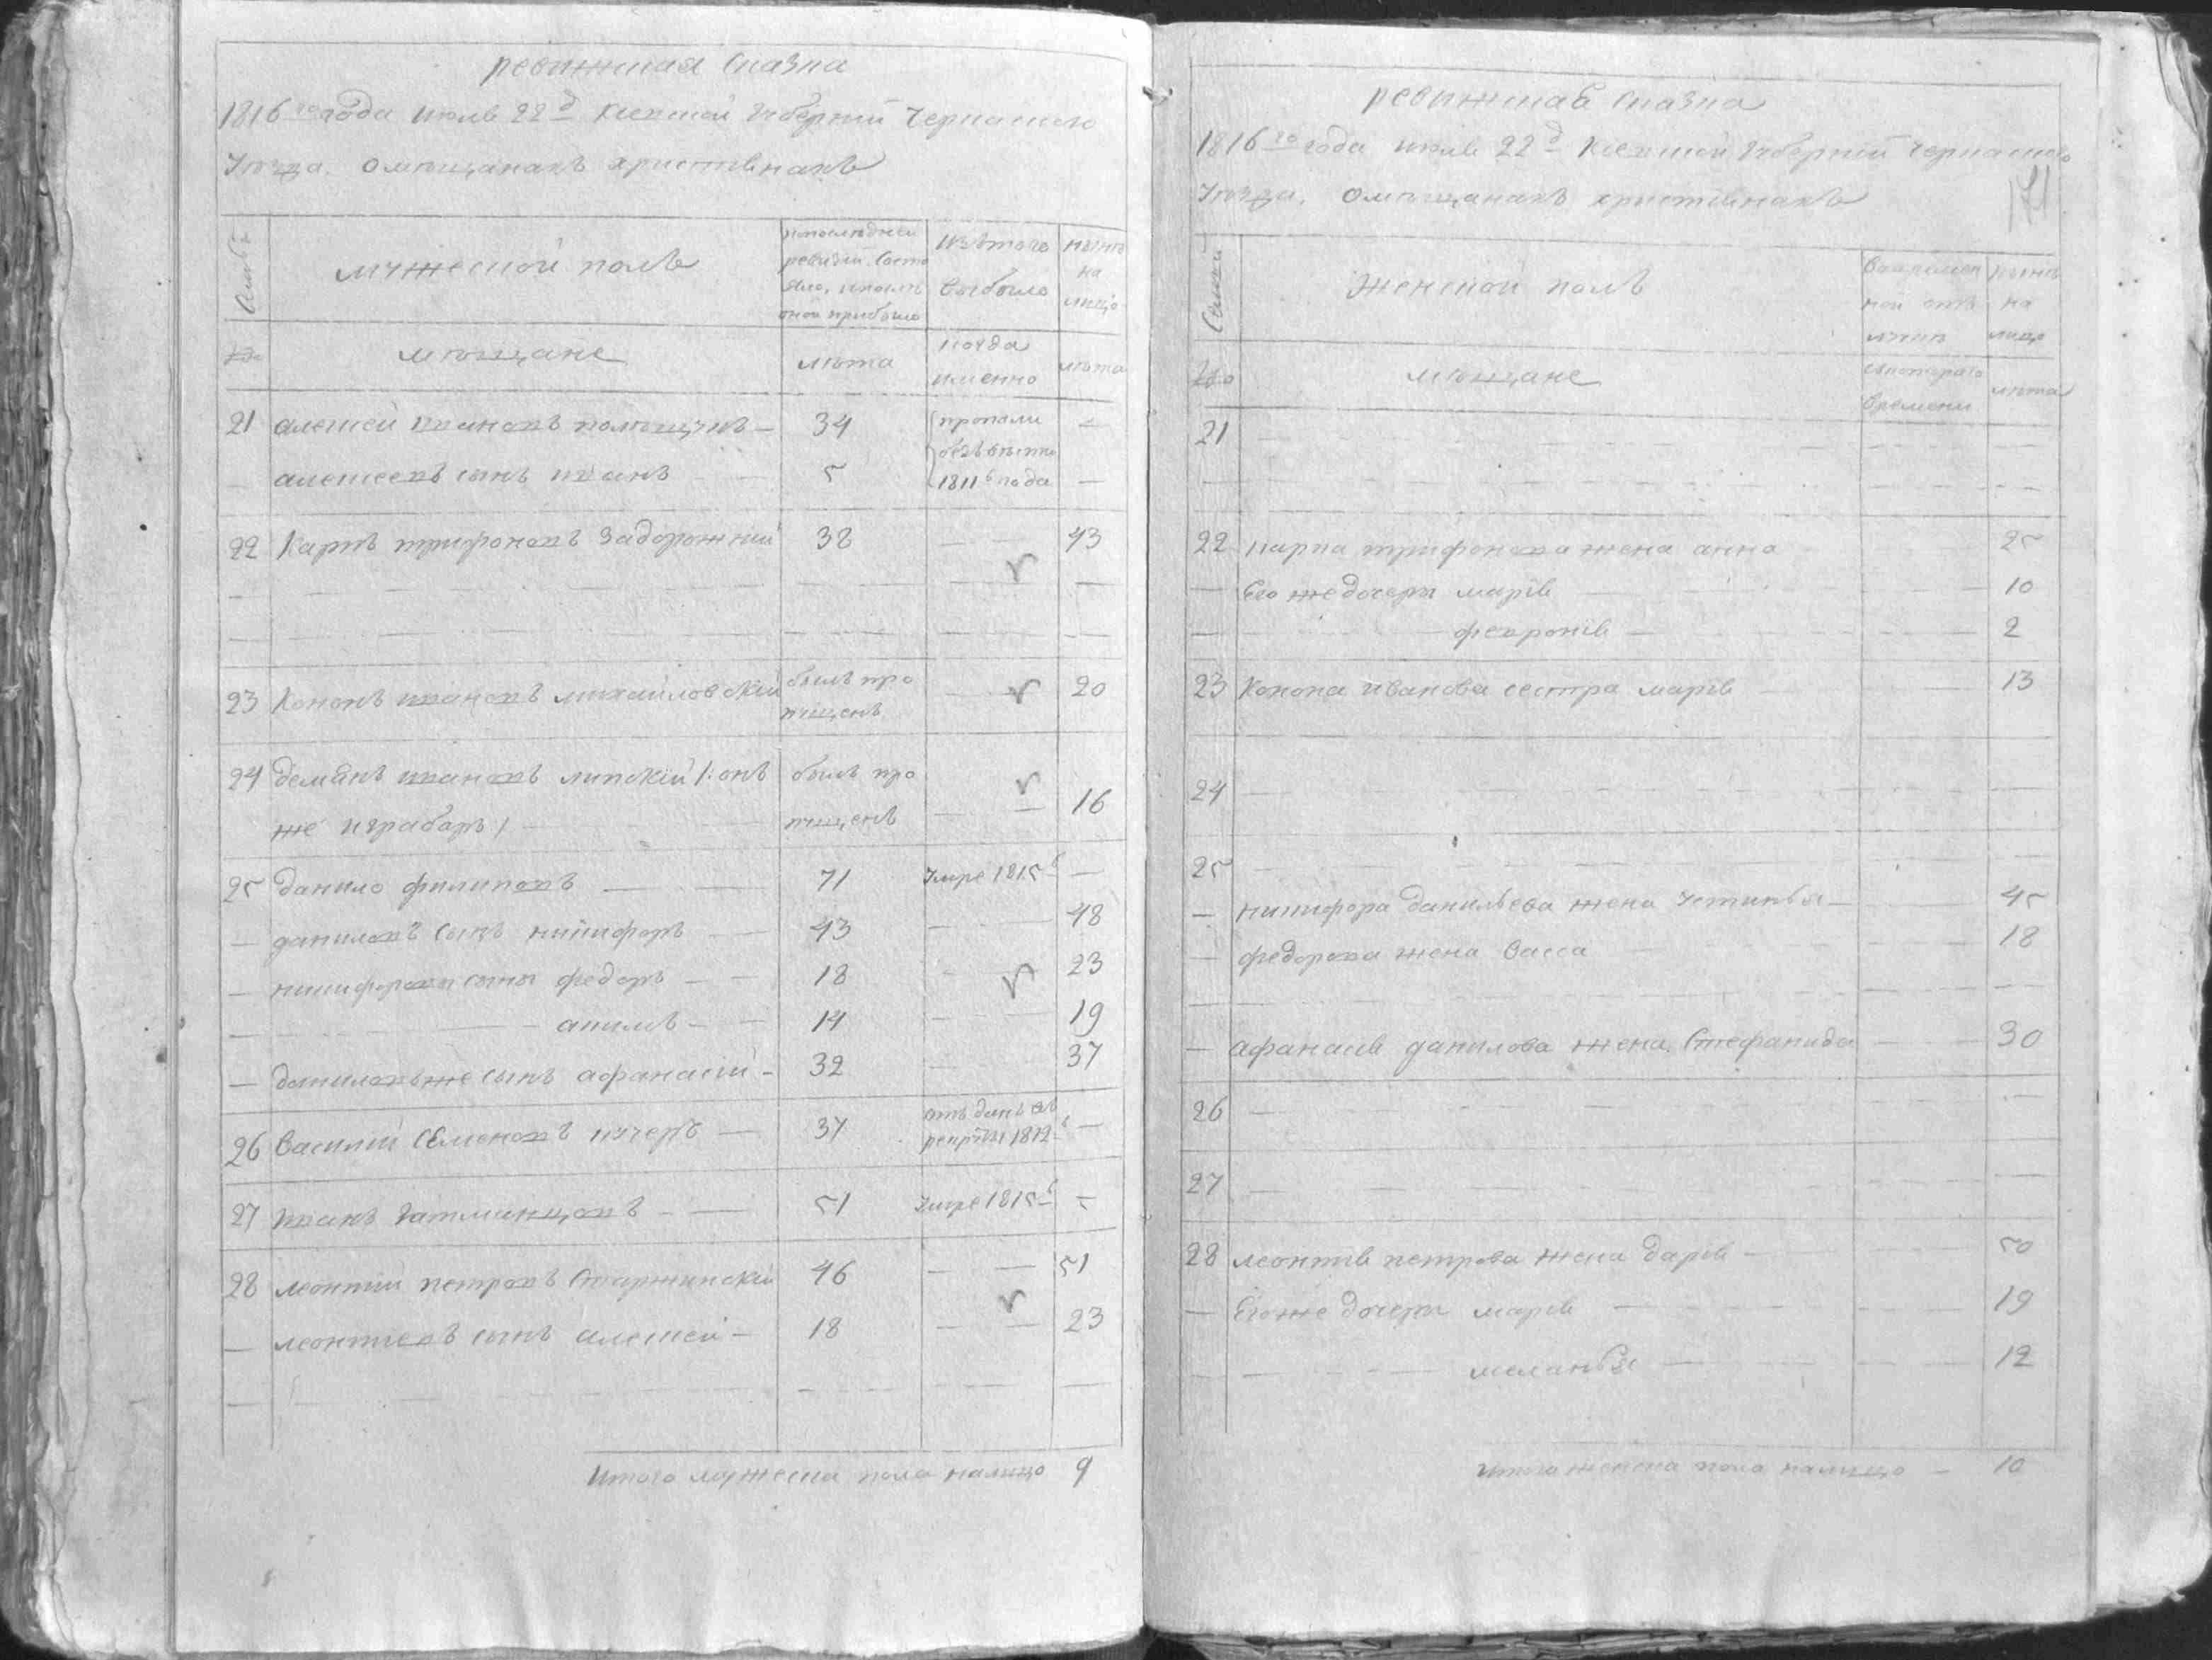 ревижская Сказка
1816 го года июля 22 д Киевской Губернии Черкаского
Уезда. О мещанахъ христіянахъ
Семьи
мужеской полъ
по последней
ревизіи состо
яло, и после
оной прибыло
Изъ того
выбыло
ныне
на
лицо
№
мещане
лета
когда
именно
лета
21 алексей ивановъ — 34 пропали —
безъ вести
алексеевъ сынъ иванъ — 5 1811 года —
22 Карпъ трифоновъ Задорожній 38 — 43
23 Кононъ ивановъ михайловскій былъ про — 20
пущенъ
24 демянъ ивановъ липскій /: онъ былъ про
же играбаръ :/ — пущенъ — 16
25 данило филиповъ — 71 Умре 1815 —
— даниловъ сынъ никифоръ — 43 — 48
— никифоровы сыны федоръ — 18 — 23
— акимъ — 14 — 19
— даниловъ же сынъ афанасій — 32 — 37
26 Василий Семеновъ кучеръ — 37 отъданъ въ —
рекруты 1812
27 иванъ Гатманцовъ — 51 Умре 1815 —
28 леонтий петровъ Старжинскій 46 — 51
— леонтиевъ сынъ алексей — 18 — 23
Итого мужеска пола налицо 9
ревижская Сказка
1816 го года июля 22 д Киевской Губернии Черкаского
Уезда. О мещанахъ христіянахъ
Семьи
Женской полъ
Во времен
ной отлу
чкѣ
ныне
на
лицо
№
мещане
с котораго
времени
лета
21
22 карпа трифонова жена анна 25
— Его же дочери марія — 10
— феврония — 2
23 Конона иванова сестра марія — 13
24
25
— никифора данильева жена устинья — 45
— федорова жена Васса — 18
— афанасия данилова жена Стефанида — 30
26
27
28 леонтія петрова жена дарія — 50
— Его же дочери марія — 19
— меланья — 12
Итого женска пола налицо — 10